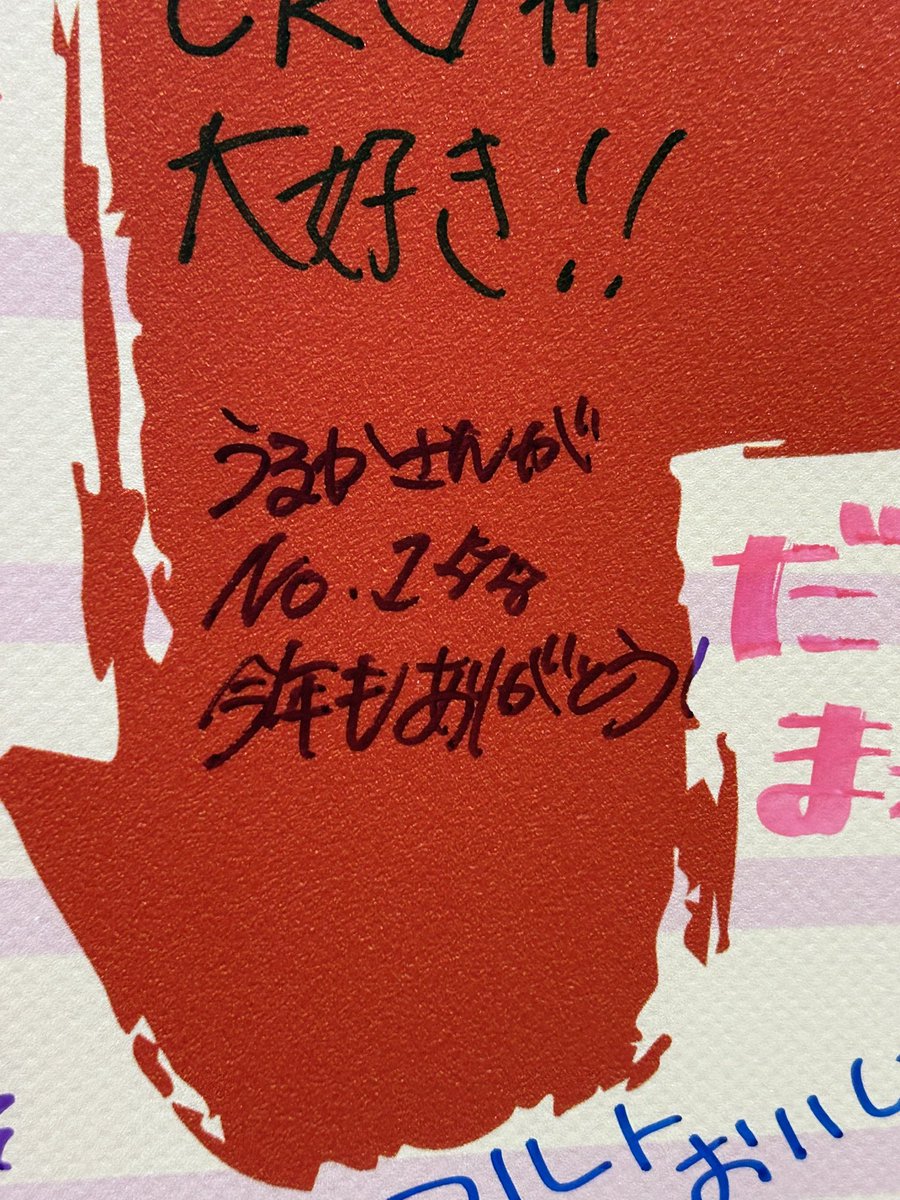 大好き!!
うるかさんが
No.1
今年もありがとう!
だ
ま
ルトおいし